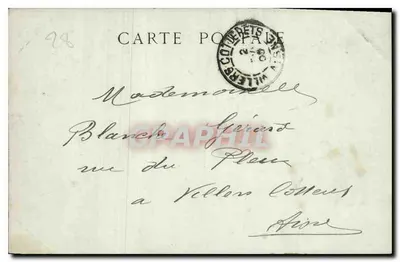 28
CARTE POSTALE
VILLERS-COTTERETS AISNE
Mademoiselle
Blanche Girard
rue du Pleux
a Villers Cotterets
Aisne